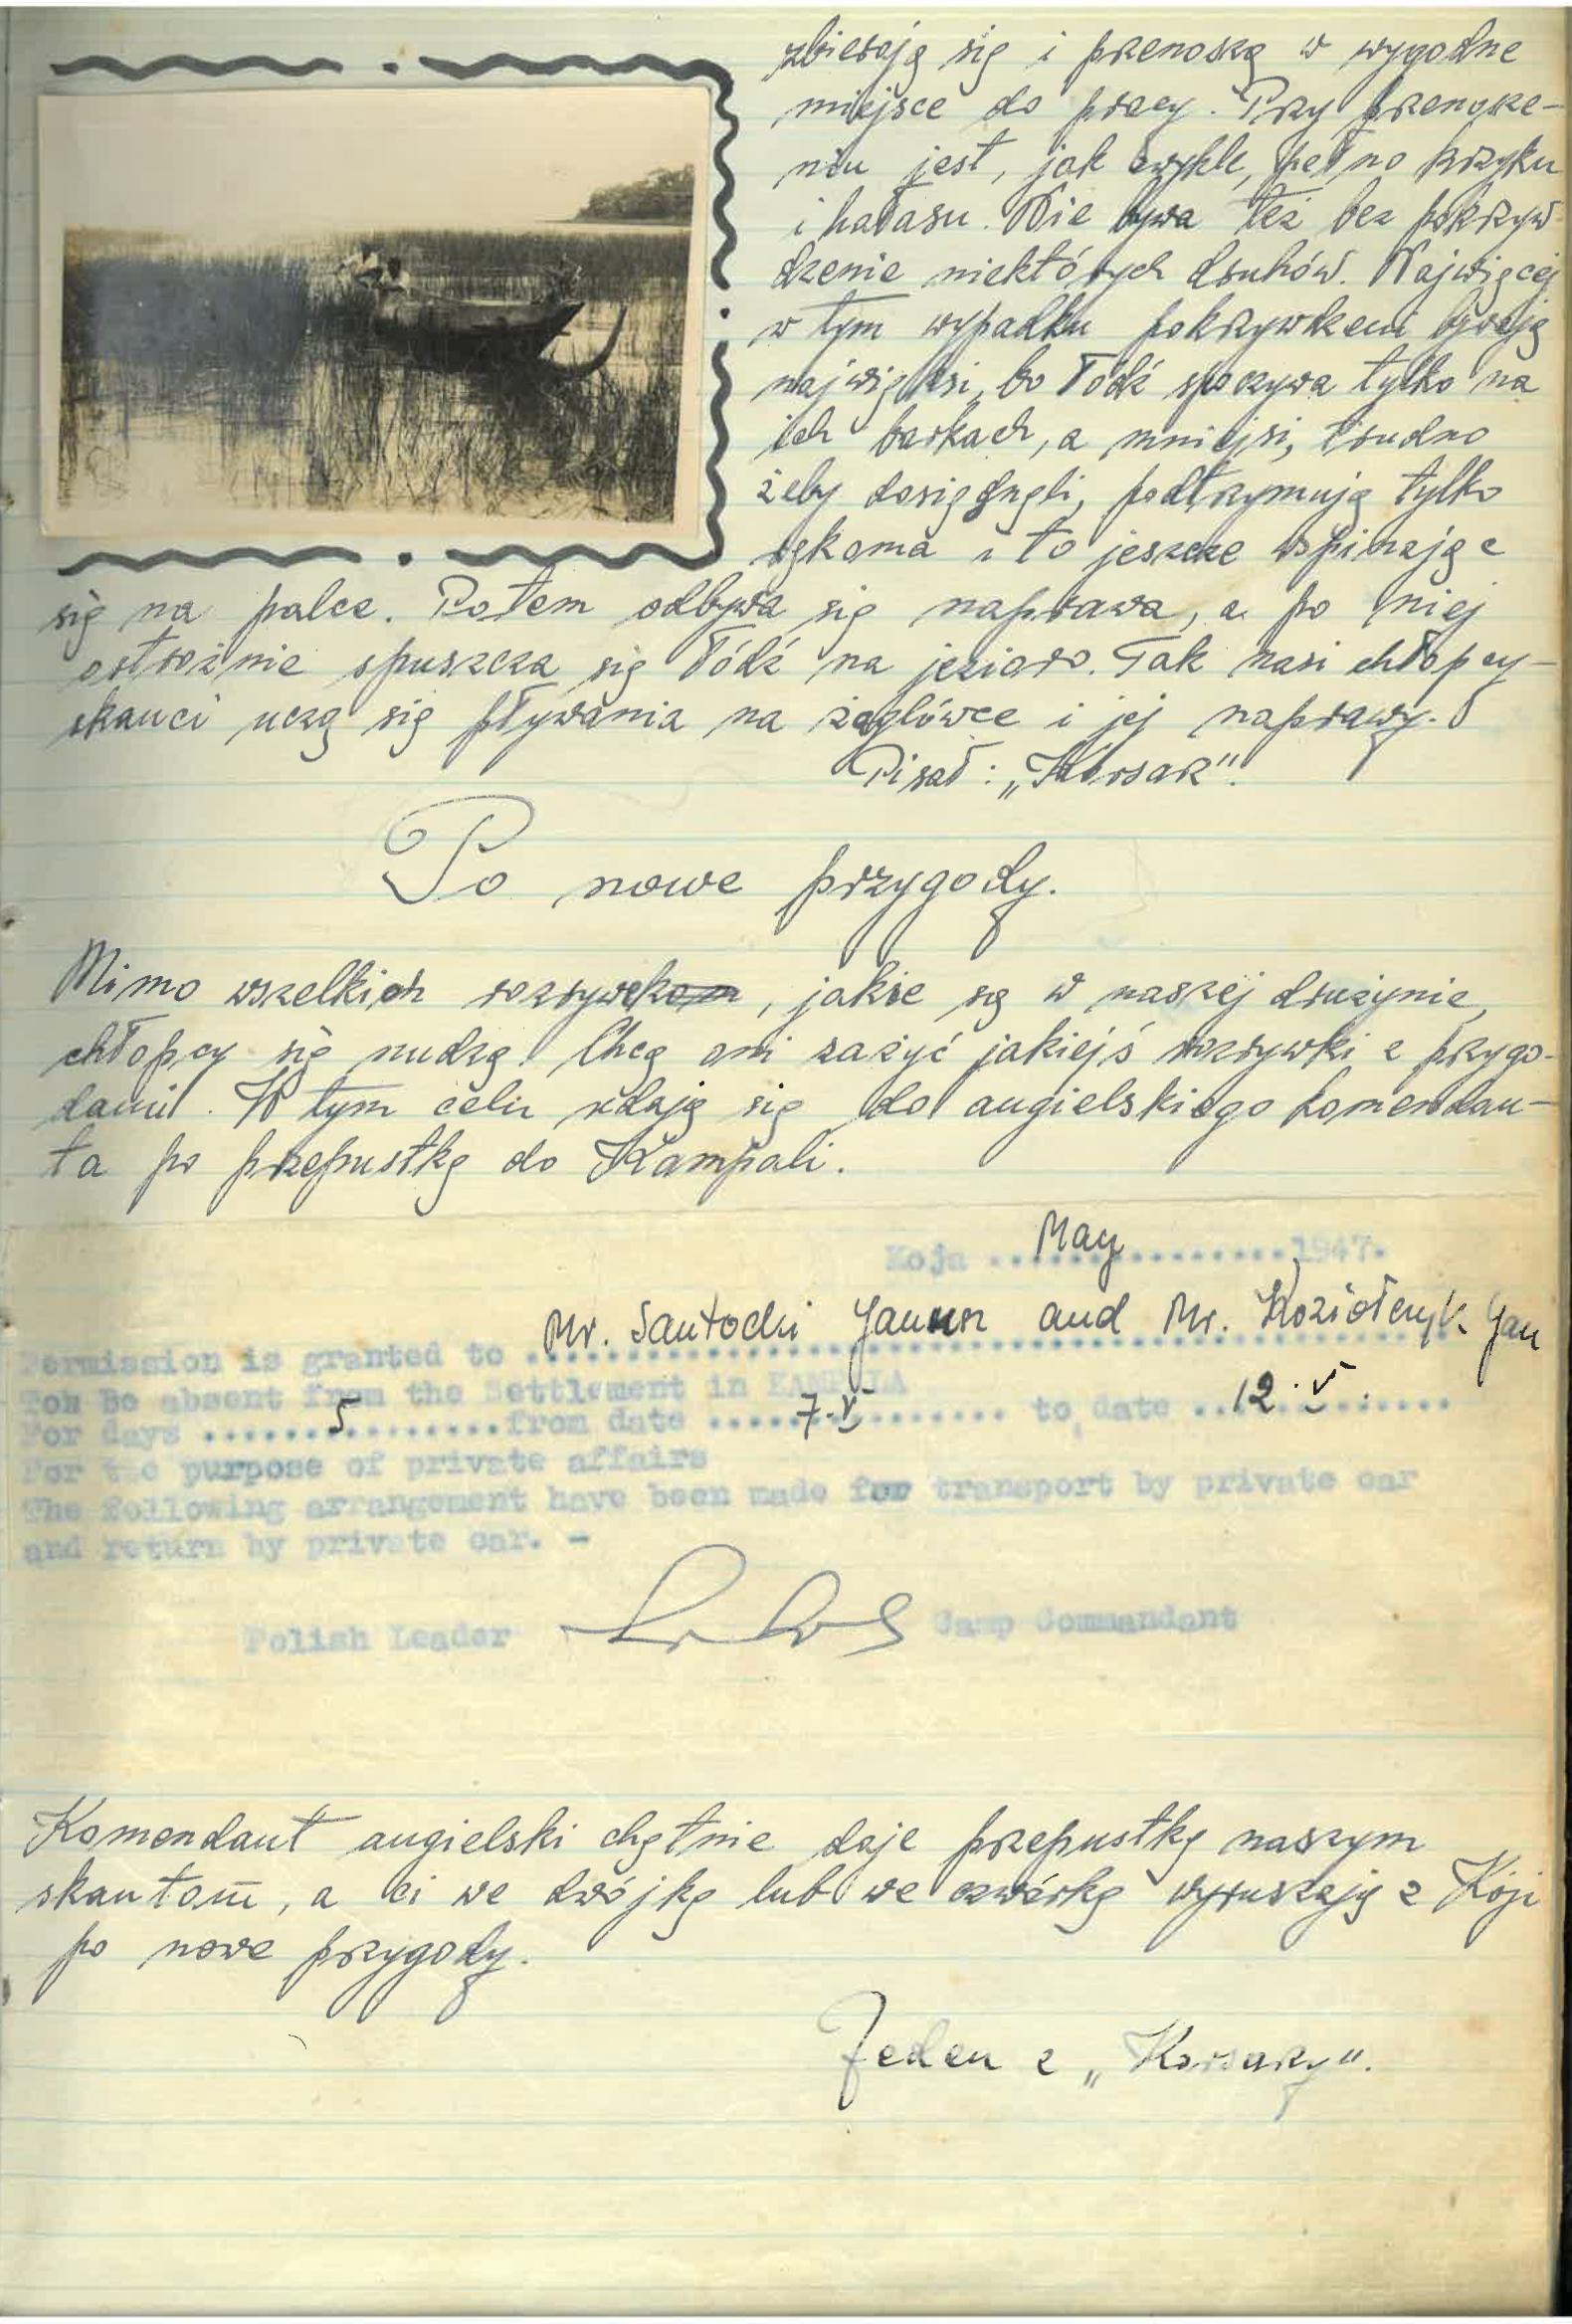 zbierają się i przenoszą w wygodne
miejsce do pracy. Przy przenosze-
niu jest, jak zwykle, pełno krzyku
i hałasu. Nie bywa też bez pokrzyw-
dzenie niektórych druhów. Najwięcej
w tym wypadku pokrzywdzeni bywają
najwięksi, bo łódź spoczywa tylko na
ich barkach, a mniejsi, trudno
żeby dosięgnęli, podtrzymują tylko
rękoma i to jeszcze wspinając
się na palce. Potem odbywa się naprawa, a po niej
ostrożnie spuszcza się łódź na jezioro. Tak nasi chłopcy-
skauci uczą się pływania na żaglówce i jej naprawy.
Pisał: „Korsarz".
Po nowe przygody.
Mimo wszelkich rozrywek, jakie są w naszej drużynie,
chłopcy się nudzą. Chcą oni zażyć jakiejś rozrywki z przygo-
dami. W tym celu udają się do angielskiego komendan-
ta po przepustkę do Kampali.
Koja .... May .... 1947.
Permission is granted to Mr. Santocki Janusz and Mr. Koziołczyk Jan
Toh Be absent from the Settlement in KAMPALA
For days .... 5 .... from date .... 7.V .... to date .... 12.V ....
For the purpose of private affairs
The following arrangement have been made for transport by private car
and return by private car. -
Polish Leader Camp Commandant
Komendant angielski chętnie daje przepustkę naszym
skautom, a ci we dwójkę lub we czwórkę wyruszają z Koji
po nowe przygody.
Jeden z „Korsarzy".